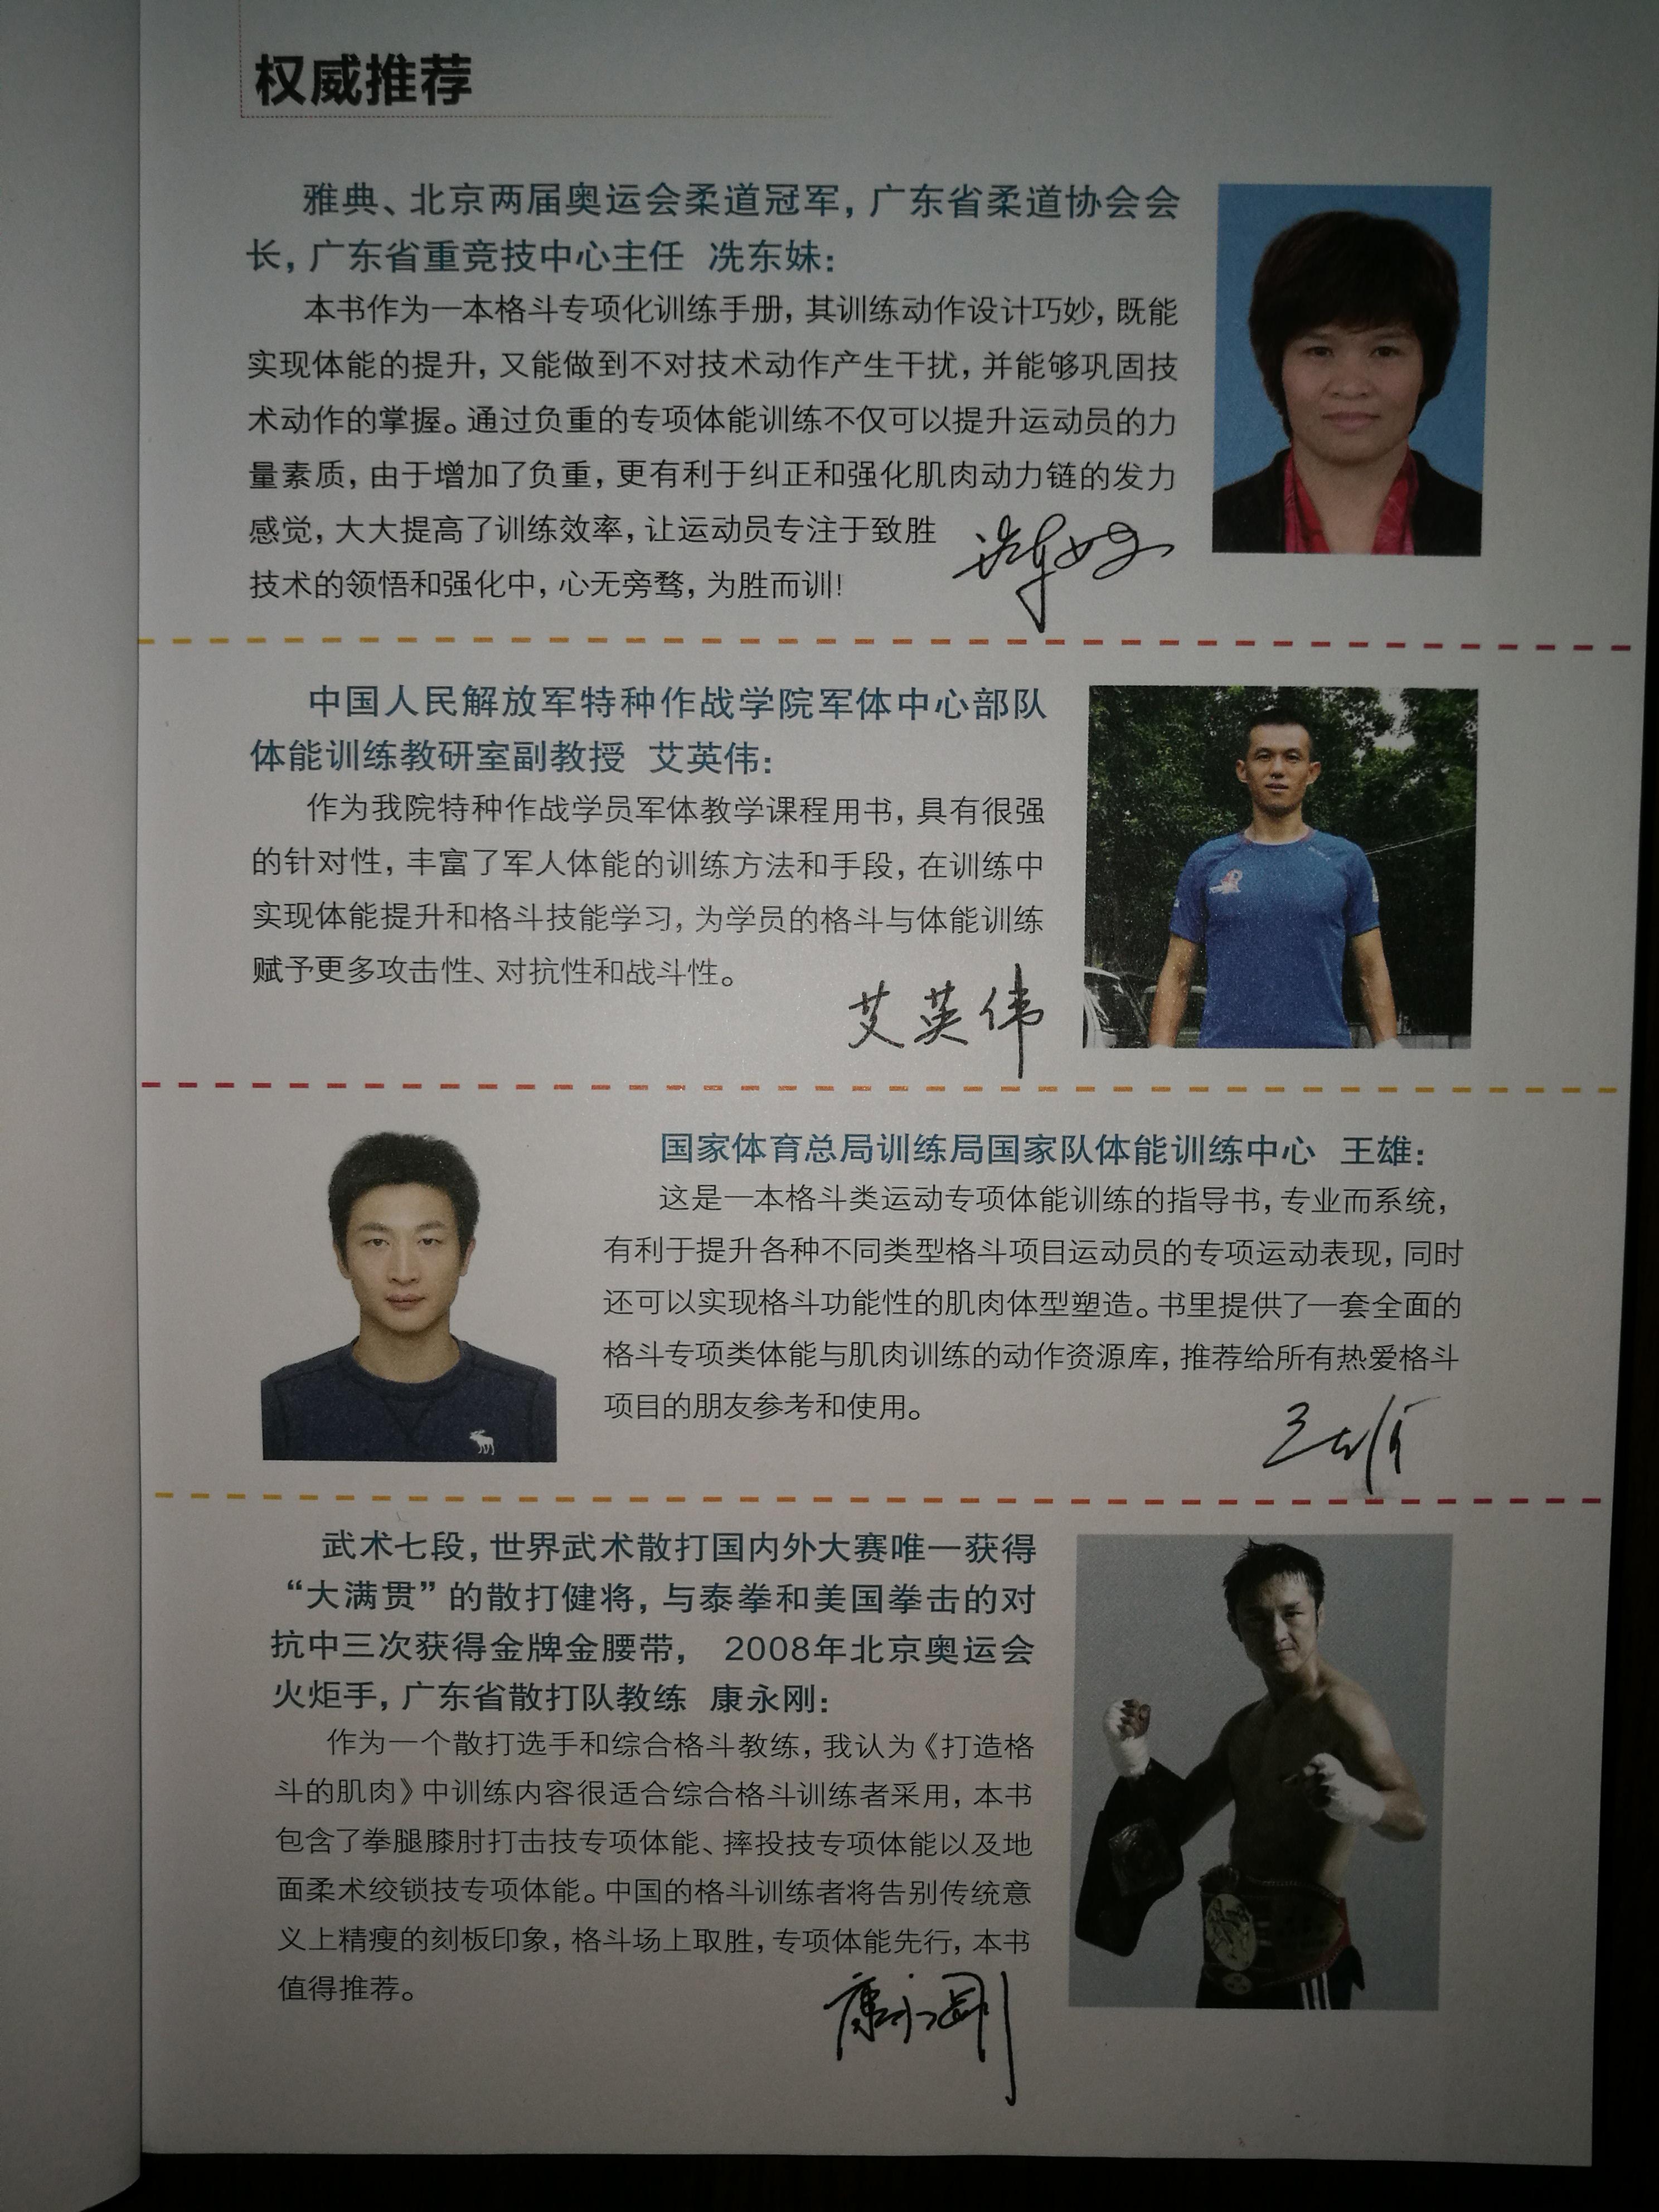 权威推荐
雅典、北京两届奥运会柔道冠军，广东省柔道协会会
长，广东省重竞技中心主任 冼东妹：
本书作为一本格斗专项化训练手册，其训练动作设计巧妙，既能
实现体能的提升，又能做到不对技术动作产生干扰，并能够巩固技
术动作的掌握。通过负重的专项体能训练不仅可以提升运动员的力
量素质，由于增加了负重，更有利于纠正和强化肌肉动力链的发力
感觉，大大提高了训练效率，让运动员专注于致胜
技术的领悟和强化中，心无旁骛，为胜而训！
冼东妹
中国人民解放军特种作战学院军体中心部队
体能训练教研室副教授 艾英伟：
作为我院特种作战学员军体教学课程用书，具有很强
的针对性，丰富了军人体能的训练方法和手段，在训练中
实现体能提升和格斗技能学习，为学员的格斗与体能训练
赋予更多攻击性、对抗性和战斗性。
艾英伟
国家体育总局训练局国家队体能训练中心 王雄：
这是一本格斗类运动专项体能训练的指导书，专业而系统，
有利于提升各种不同类型格斗项目运动员的专项运动表现，同时
还可以实现格斗功能性的肌肉体型塑造。书里提供了一套全面的
格斗专项类体能与肌肉训练的动作资源库，推荐给所有热爱格斗
项目的朋友参考和使用。
王雄
武术七段，世界武术散打国内外大赛唯一获得
“大满贯”的散打健将，与泰拳和美国拳击的对
抗中三次获得金牌金腰带， 2008年北京奥运会
火炬手，广东省散打队教练 康永刚：
作为一个散打选手和综合格斗教练，我认为《打造格
斗的肌肉》中训练内容很适合综合格斗训练者采用，本书
包含了拳腿膝肘打击技专项体能、摔投技专项体能以及地
面柔术绞锁技专项体能。中国的格斗训练者将告别传统意
义上精瘦的刻板印象，格斗场上取胜，专项体能先行，本书
值得推荐。
康永刚